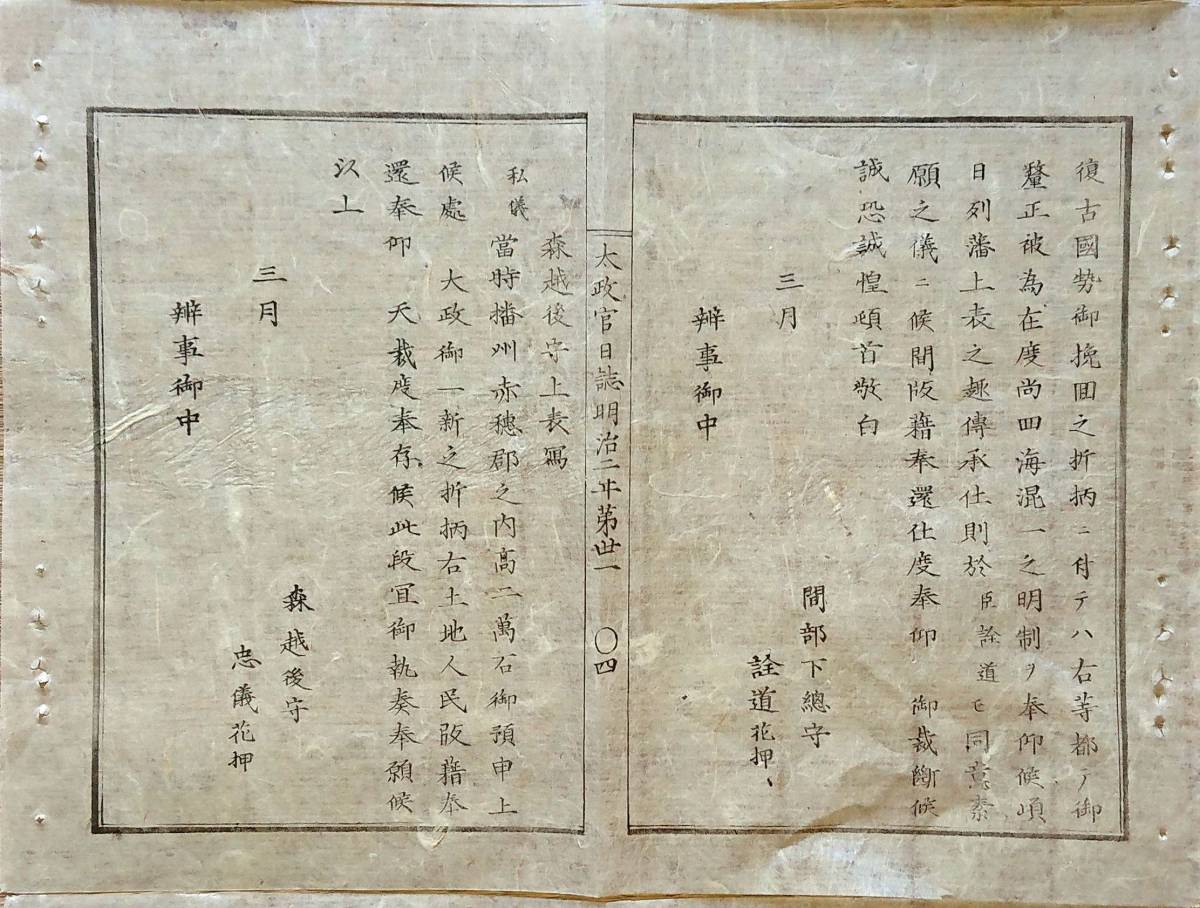 復古國勢御挽囬之折柄ニ付テハ右等都テ御
釐正被為在度尚四海混一之明制ヲ奉仰候頃
日列藩上表之趣傳承仕則於臣詮道モ同意素
願之儀ニ候間版籍奉還仕度奉仰　御裁斷候
誠恐誠惶頓首敬白
三月
間部下總守
詮道花押
辨事御中
太政官日誌明治二年第卅一　〇四
森越後守上表寫
私儀當時播州赤穗郡之内高二萬石御預申上
候處　大政御一新之折柄右土地人民版籍奉
還奉仰　天裁度奉存候此段冝御執奏奉願候
以上
三月
森越後守
忠儀花押
辨事御中